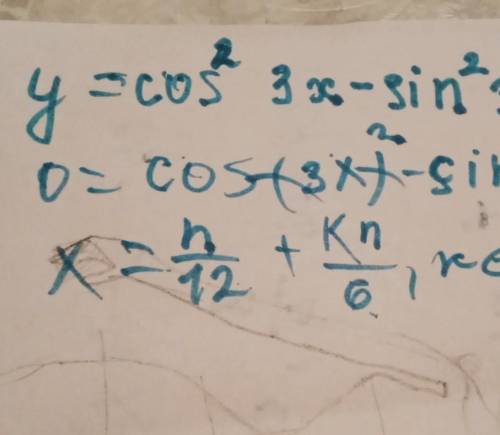 y = cos² 3x - sin²
0 = cos (3x)² - sin
x = п/12 + Kп/6, кє